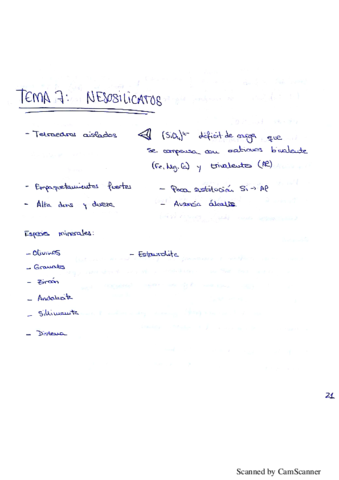 TEMA 7: NESOSILICATOS
- Tetraedros aislados (SiO4)4- déficit de carga que
se compensa con cationes bivalente
(Fe, Mg, Ca) y trivalentes (Al)
- Empaquetamientos fuertes - Poca sustitución Si → Al
- Alta dens y dureza - Ausencia álcalis
Especies minerales:
- Olivinos - Estaurolita
- Granates
- Zircón
- Andalucita
- Sillimanita
- Distena
21
Scanned by CamScanner